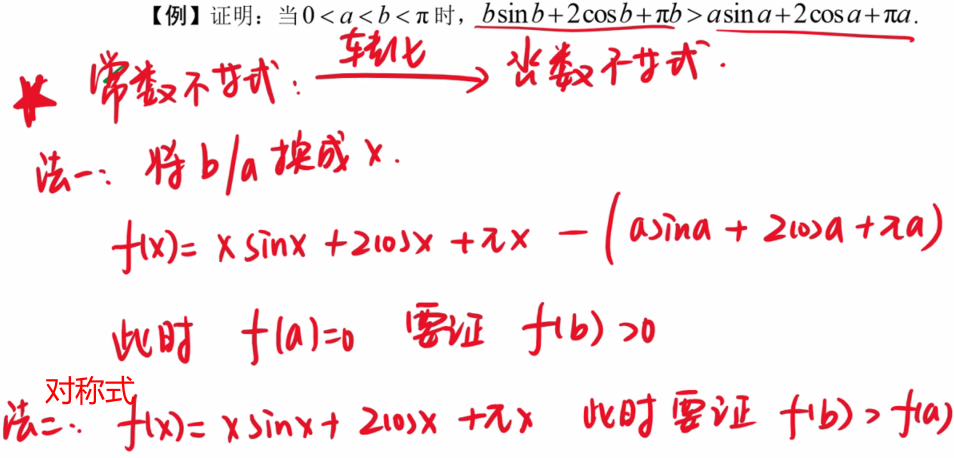 【例】证明：当0<a<b<π时，bsinb+2cosb+πb>asina+2cosa+πa.
常数不等式：转化→函数不等式.
法一：将b/a换成x.
f(x)=xsinx+2cosx+πx-(asina+2cosa+πa)
此时 f(a)=0 要证 f(b)>0
对称式
法二：f(x)=xsinx+2cosx+πx 此时要证 f(b)>f(a)